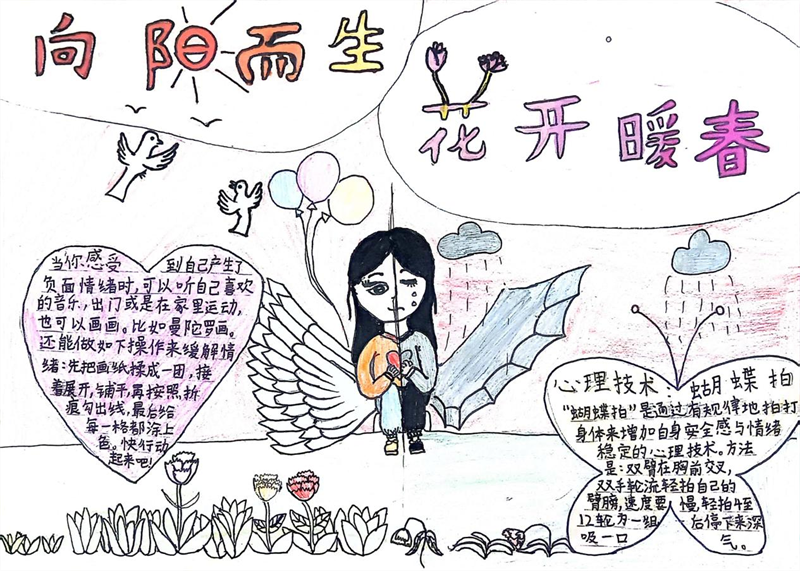 向阳而生
花开暖春
当你感受 到自己产生了
负面情绪时,可以听自己喜欢
的音乐,出门或是在家里运动,
也可以画画。比如曼陀罗画。
还能做如下操作来缓解情
绪:先把画纸揉成一团,接
着展开,铺平,再按照折
痕勾出线,最后给
每一格都涂上
色。快行动
起来吧!
心理技术:蝴蝶拍
“蝴蝶拍”是通过有规律地拍打
身体来增加自身安全感与情绪
稳定的心理技术。方法
是:双臂在胸前交叉,
双手轮流轻拍自己的
臂膀,速度要慢,轻拍4至
12轮为一组 后停下来深
吸一口 气。